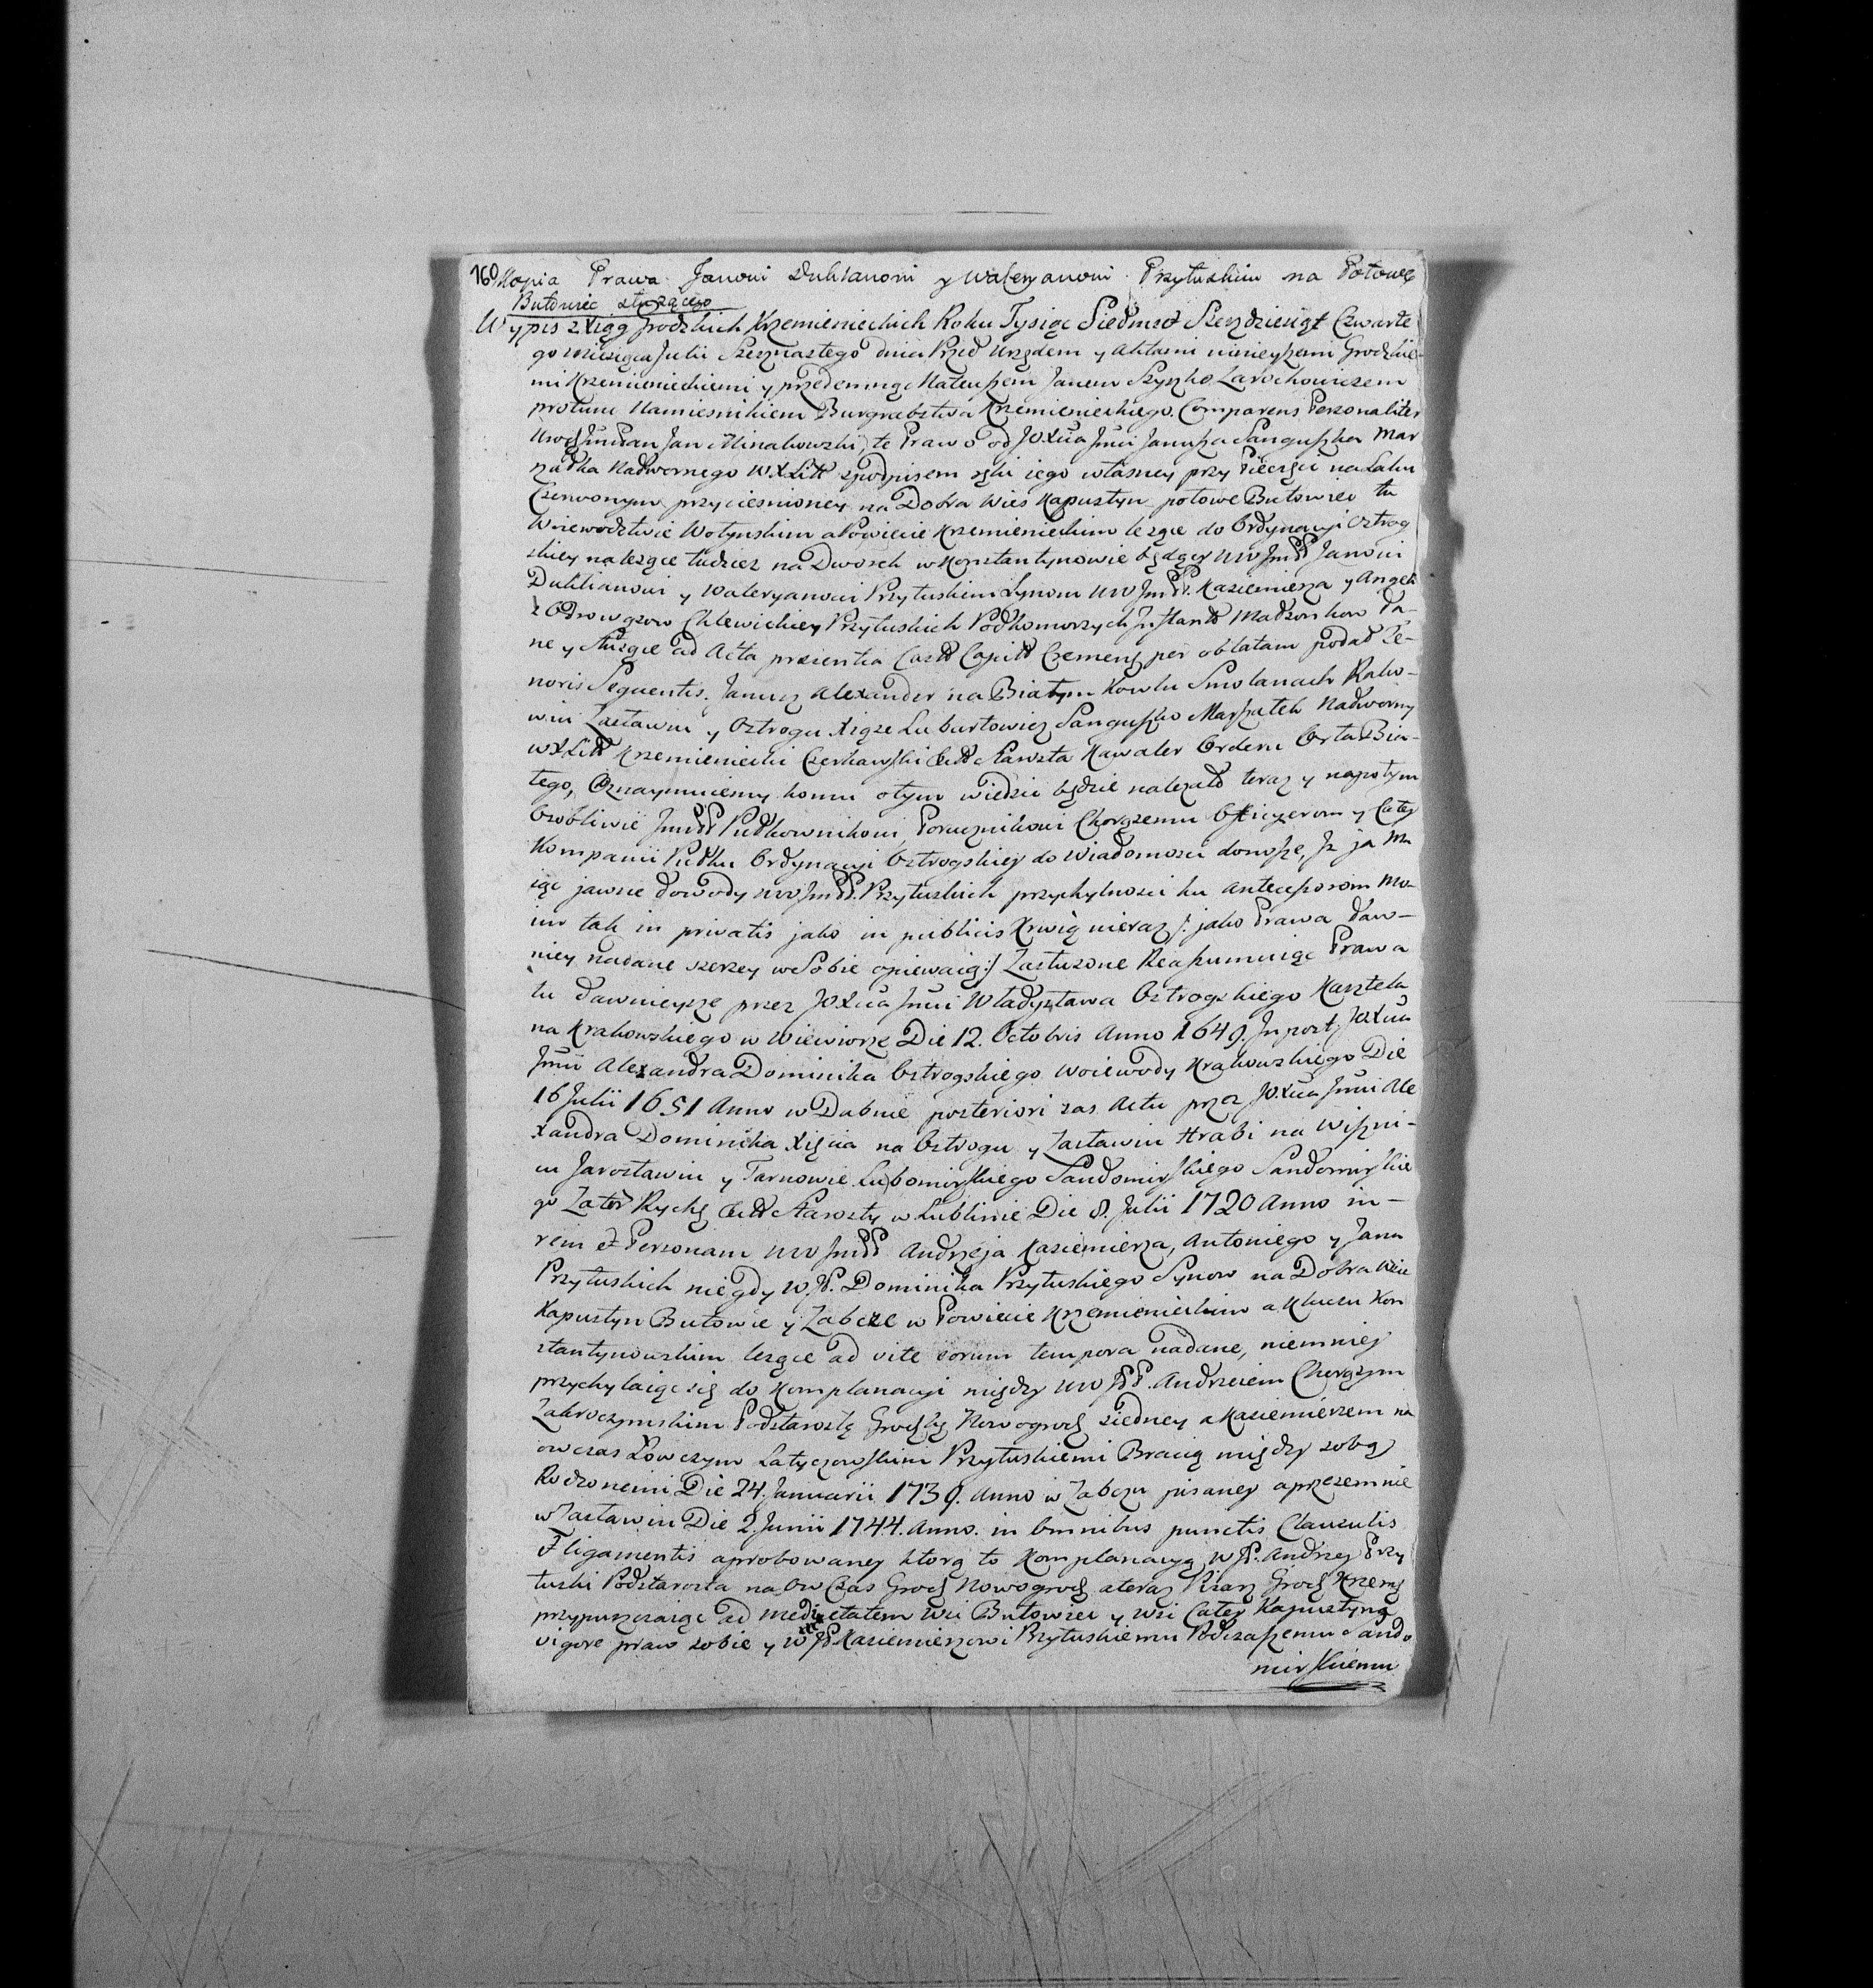 160 Kopia Prawa Janowi Duklanowi y Waleryanowi Przyłuskim na Połowę
Butowiec służącego
Wypis z Xiąg Grodzkich Krzemienieckich Roku Tysiąc Siedmset Szeszdziesiąt Czwarte
go miesiąca Julii Szesznastego dnia Przed Urzędem y Aktami ninieyszemi Grodzkie-
mi Krzemienieckiemi y przedemną Mateuszem Janem Szyszko Larochowiczem
protunc Namiesnikiem Burgrabstwa Krzemienieckiego. Comparens Personaliter
Urodz Jmć Pan Jan Minakowski, te Prawo od JOXcia Jmci Janusza Sanguszka Mar
szałka Nadwornego W.X.Litt z podpisem ręki iego własney przy Pieczęci na Laku
Czerwonym przyciesnioney na Dobra Wies Kapustyn połowe Butowiec tu
Woiewodztwie Wołynskim a Powiecie Krzemienieckim leżące do Ordynacyi Ostrog
skiey należące tudziez na Dworek w Konstantynowie będący UW JmPP Janowi
Duklianowi y Waleryanowi Przyłuskim Synom UW JmPP. Kazimierza y Angeli
z Odrowązow Chlewickiey Przyłuskich Podkomorzych Inflantt Małzonkow Da-
ne y służące ad Acta presentia Castr Capitt Cremenz per oblatam podał Te-
noris Sequentis. Janusz Alexander na Białym Kowlu Smolanach Rako-
wiu Zasławiu y Ostrogu Xiąze Lubartowicz Sanguszko Marszałek Nadworny
W.X.Litt Krzemieniecki Czerkawski &tt Starosta Kawaler Orderu Orła Bia-
łego, Oznaymuiemy komu o tym wiedzić będzie należało teraz y napotym
Osobliwie JmPP Pułkownikowi, Porucznikowi Chorązemu Officyerom y Całey
Kompanii Pułku Ordynacyi Ostrogskiey do wiadomosci donoszę, Iz ja Ma
iąc jawne dowody UW JmPP. Przyłuskich przychylnosci ku Antecessorom Mo-
im tak in privatis jako in publicis Krwią nieraz /: jako Prawa daw-
niey nadane szerzey w Sobie opiewaią :/ Zasłuzone Reassumuiąc Prawa
tu dawnieysze przez JOXcia Jmci Władysława Ostrogskiego Kasztela
na Krakowskiego w Wiewiorze Die 12. Octobris Anno 1649. In post JOXcia
Jmci Alexandra Dominika Ostrogskiego Woiewody Krakowskiego Die
16 Julii 1651 Anno w Dubnie posteriori zas Actu przez JOXcia Jmci Ale
xandra Dominika Xięcia na Ostrogu y Zasławiu Hrabi na Wiszni-
cu Jarosławiu y Tarnowie Lubomirskiego Sandomirskiego Sandomirskie
go Zator Rychs &tt Starosty w Lublinie Die 8. Julii 1720 Anno in-
rem et Personam UW JmPP Andrzeja Kazimierza, Antoniego y Jana
Przyłuskich niegdy W.P. Dominika Przyłuskiego Synow na Dobra Wsie
Kapustyn Butowce y Zabcze w Powiecie Krzemienieckim a Kluczu Kon
stantynowskim leżące ad vite eorum tempora nadane, niemniey
przychylaiąc się do Komplanacyi między UW PP. Andrzeiem Chorązym
Zakroczymskim Podstarostą Grodz Nowogrodz z iedney a Kazimierzem na
owczas Łowczym Latyczowskim Przyłuskiemi Bracią między sobą
Rodzonemi Die 24. Januarii 1739. Anno w Zabczu pisaney a przezemnie
w Zasławiu Die 2. Junii 1744. Anno. in Omnibus punctis Clausulis
Et ligamentis aprobowaney ktorą to Komplanacyą W P. Andrzey Przy
łuski Podstarosta na Ow Czas Grodz Nowogrodz a teraz Pisarz Grodz Krzem
przypuszczaiąc ad medietatem Wsi Butowiec y Wsi Całey Kapustyna
vigore praw sobie y W P Kazimierzowi Przyłuskiemu Podczaszemu Sando
mirskiemu